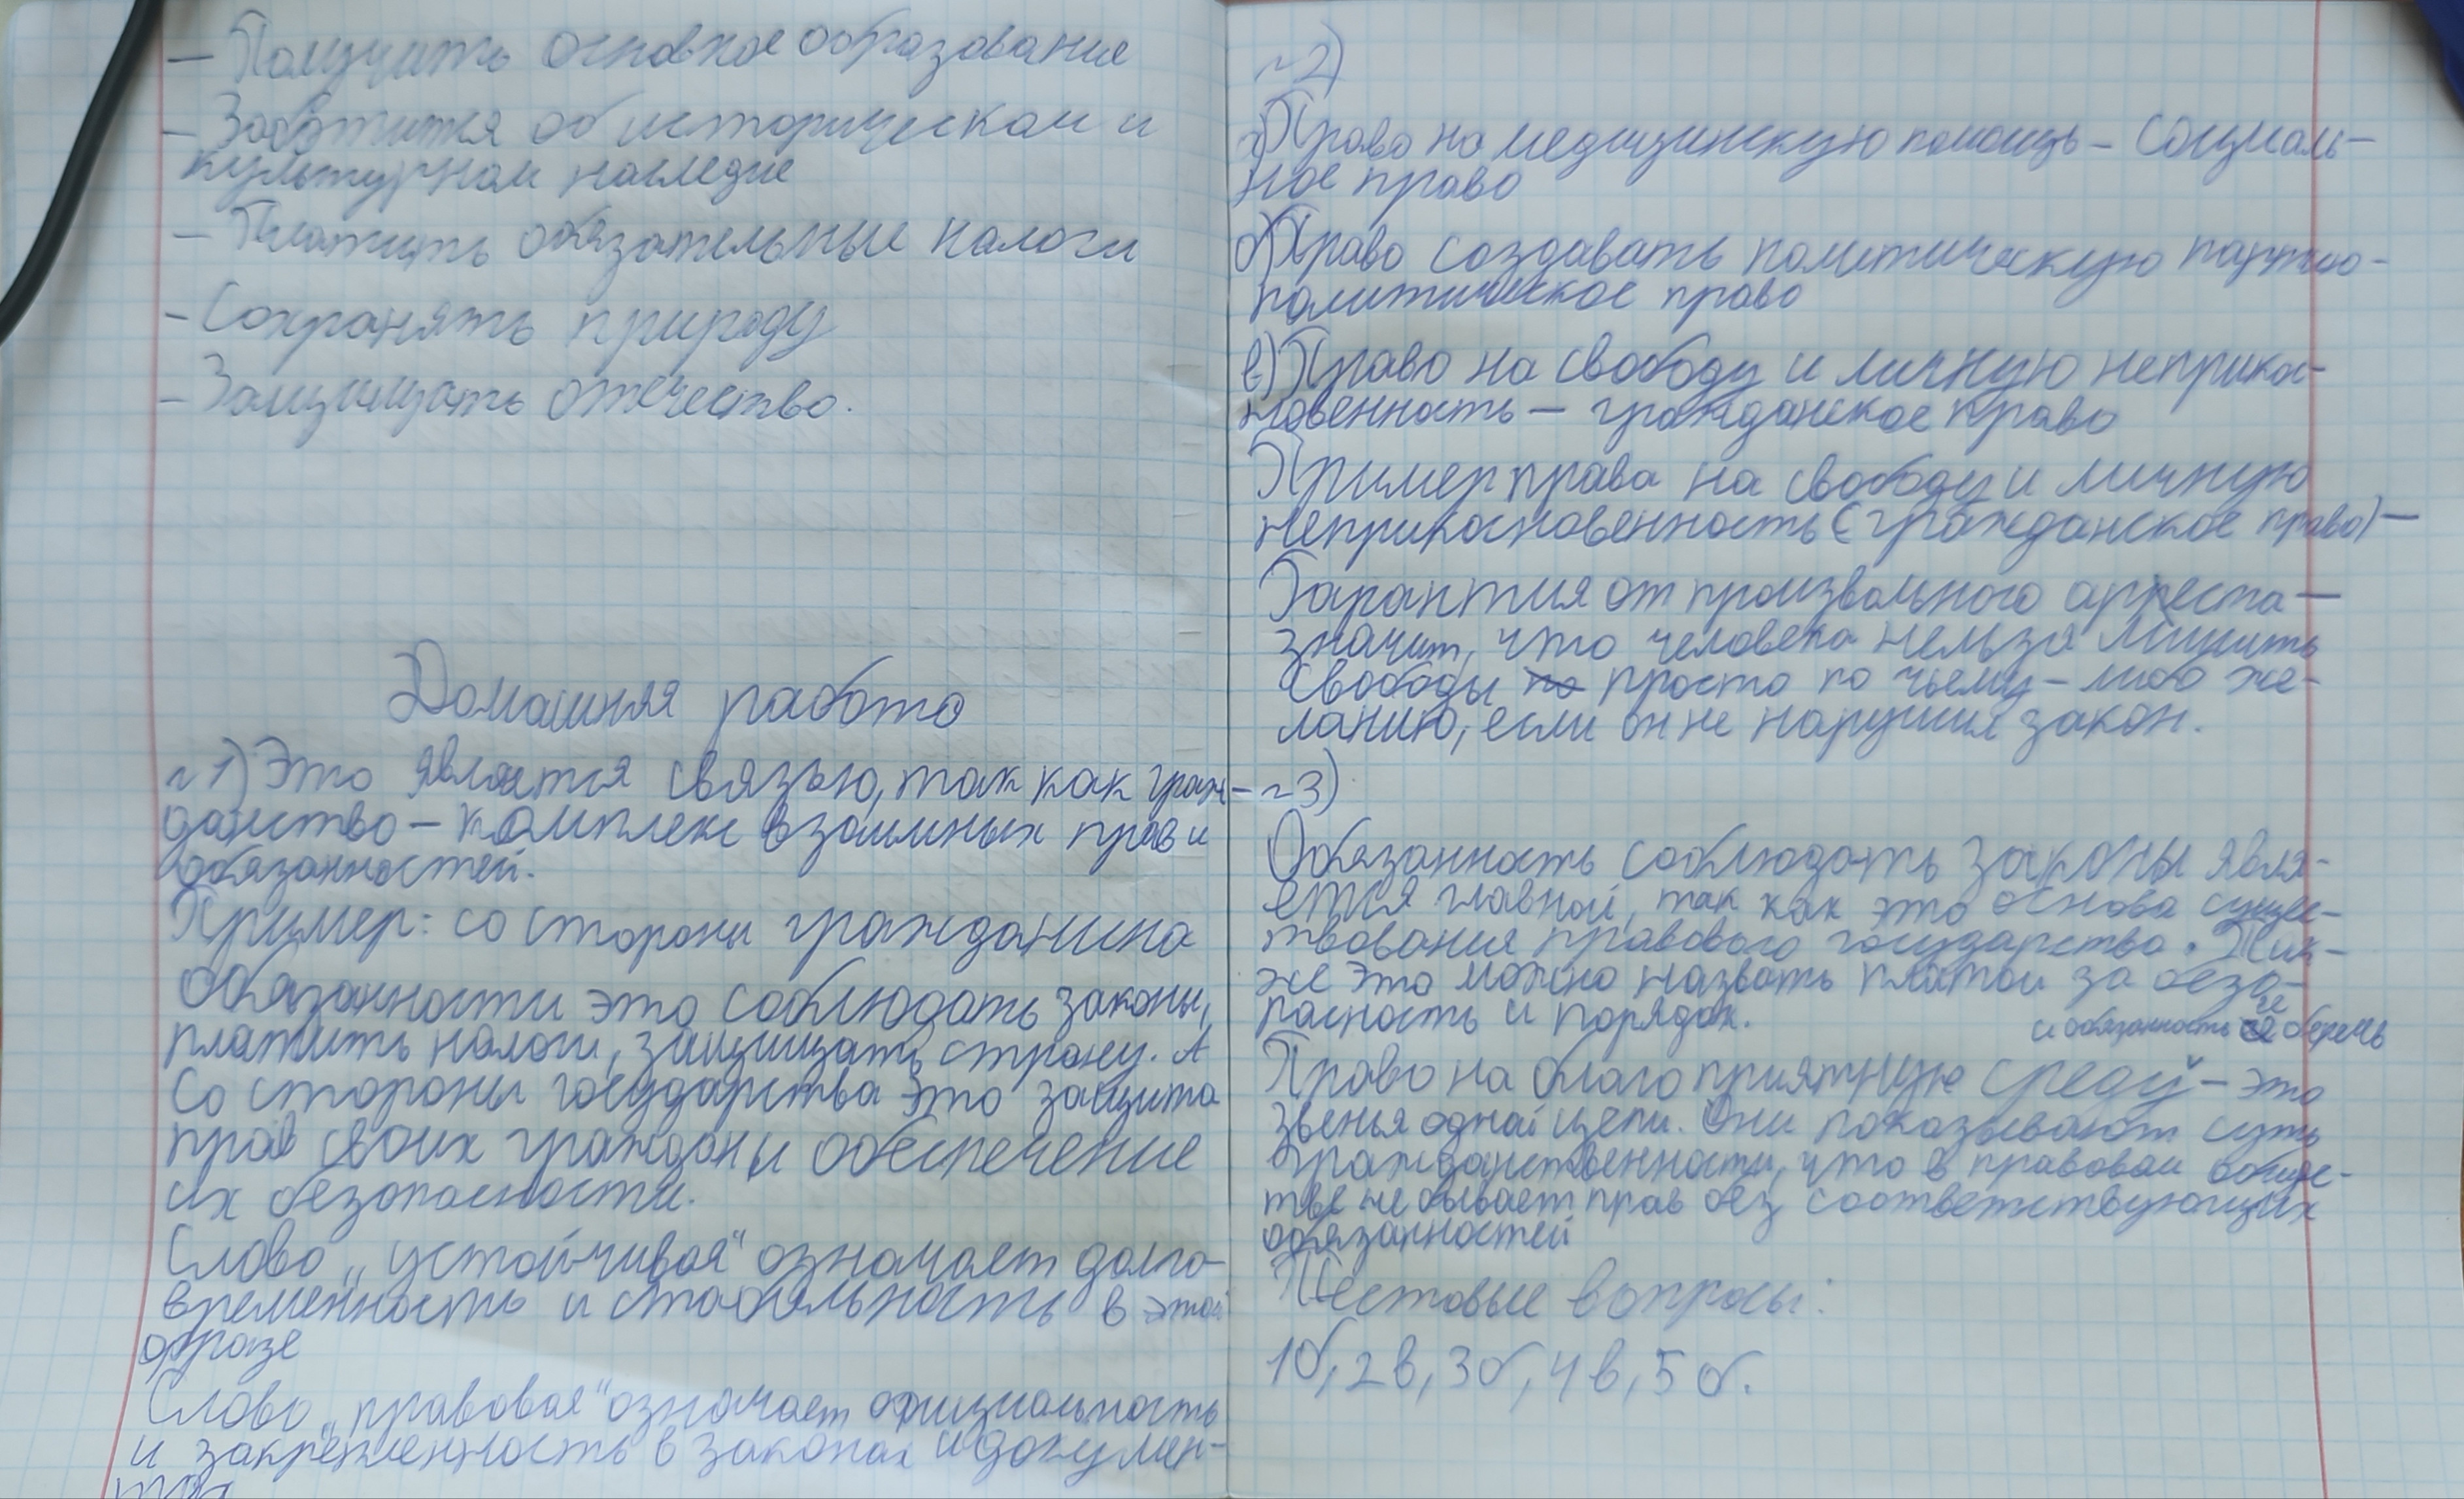 — Получить основное образование
— Заботится об историческом и
культурном наследие
— Платить обязательные налоги
— Сохранять природу
— Защищать отечество.
Домашняя работа
~1) Это является связью, так как граж-
данство — комплекс взаимных прав и
обязанностей.
Пример: со стороны гражданина
обязанности это соблюдать законы,
платить налоги, защищать страну. А
со стороны государства это защита
прав своих граждан и обеспечение
их безопасности.
Слово „устойчивая" означает долго-
временность и стабильность в этой
фразе
Слово „правовая" означает официальность
и закрепленность в законах и докумен-
тах
~2)
а) Право на медицинскую помощь – социаль-
ное право
б) Право создавать политическую партию –
политическое право
в) Право на свободу и личную неприкос-
новенность — гражданское право
Пример права на свободу и личную
неприкосновенность (гражданское право) —
Гарантия от произвольного арреста —
значит, что человека нельзя лишить
свободы просто по чьему-либо же-
ланию, если он не нарушил закон.
~3)
Обязанность соблюдать законы явля-
ется главной, так как это основа сущес-
твования правового государства. Так-
же это можно назвать платой за безо-
пасность и порядок.
и обязанность её беречь
Право на благоприятную среду – это
звенья одной цепи. Они показывают суть
гражданственности, что в правовом общес-
тве не бывает прав без соответствующих
обязанностей
Тестовые вопросы:
1б, 2в, 3б, 4в, 5б.